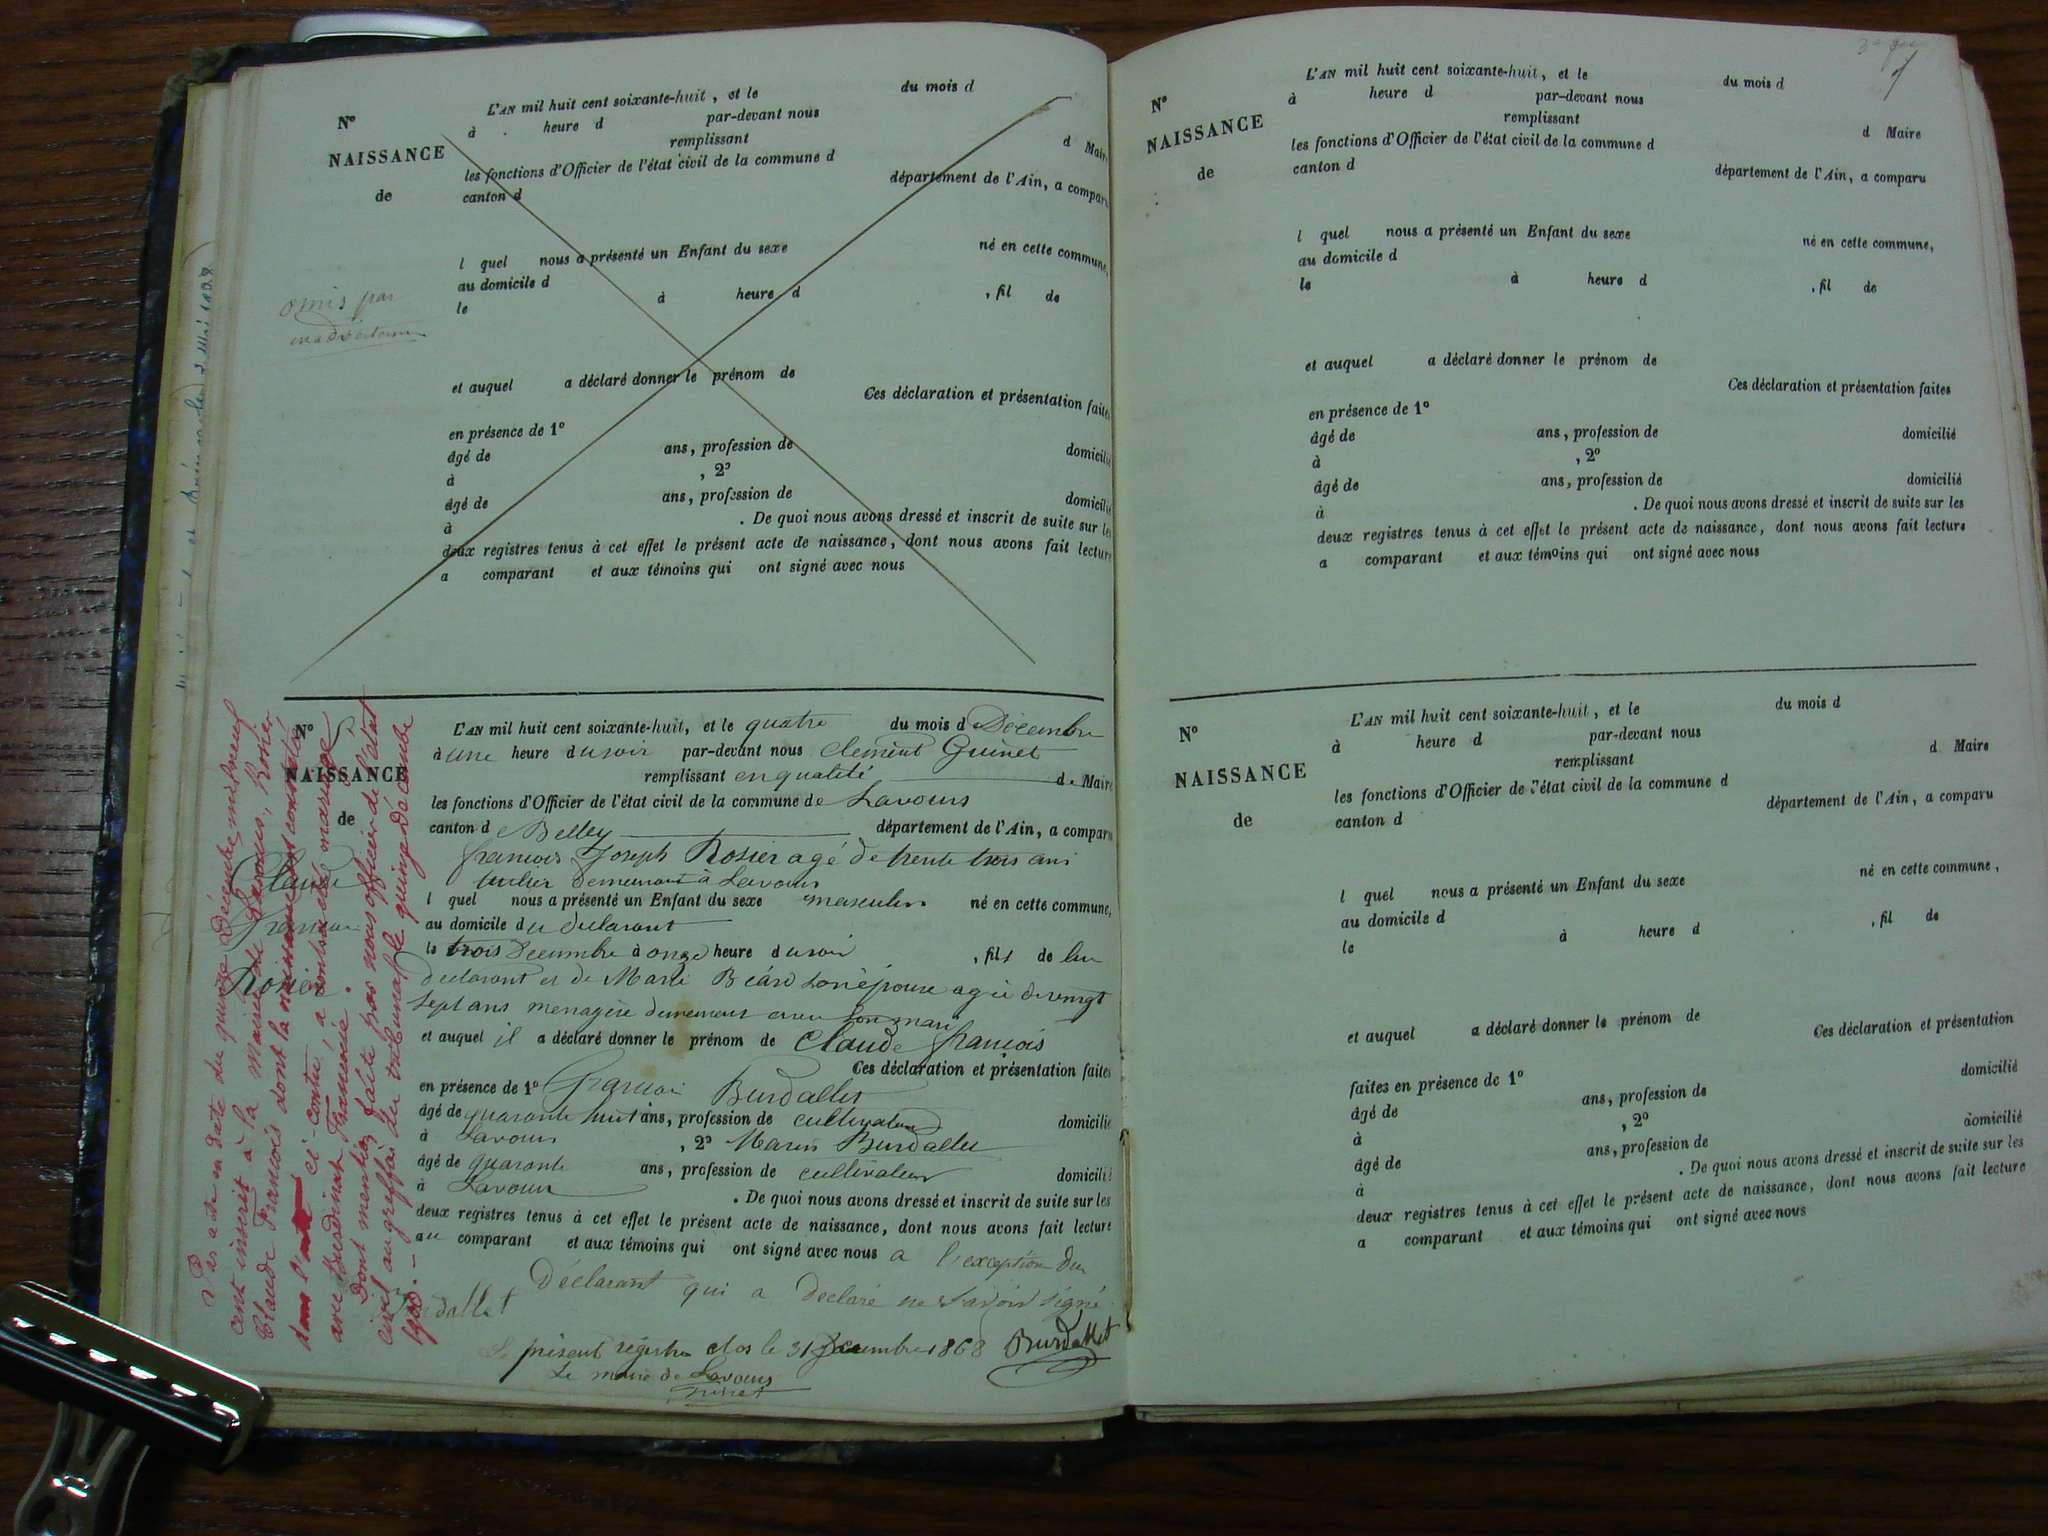 N° L'AN mil huit cent soixante-huit, et le du mois d
à heure d par-devant nous
NAISSANCE remplissant d Maire
les fonctions d'Officier de l'état civil de la commune d
de canton d département de l'Ain, a comparu
l quel nous a présenté un Enfant du sexe né en cette commune,
au domicile d
omis par
inadvertance
le à heure d , fil de
et auquel a déclaré donner le prénom de
Ces déclaration et présentation faites
en présence de 1°
âgé de ans, profession de domicilié
à , 2°
âgé de ans, profession de domicilié
à . De quoi nous avons dressé et inscrit de suite sur les
deux registres tenus à cet effet le présent acte de naissance, dont nous avons fait lecture
a comparant et aux témoins qui ont signé avec nous
N° L'AN mil huit cent soixante-huit, et le quatre du mois d Décembre
à une heure du soir par-devant nous Clement Guinet
NAISSANCE remplissant en qualité de Maire
les fonctions d'Officier de l'état civil de la commune de Lavours
de canton d Belley département de l'Ain, a comparu
françois Joseph Rosier agé de trente trois ans
demeurant à Lavours
l quel nous a présenté un Enfant du sexe masculin né en cette commune,
au domicile du declarant
le trois Decembre à onze heure du soir , fils de lui
declarant et de Marie Béard son épouse agée de vingt
sept ans menagère demeurant avec son mari
et auquel il a déclaré donner le prénom de Claude françois
Ces déclaration et présentation faites
en présence de 1° françois Burdallet
âgé de quarante huit ans, profession de cultivateur domicilié
à Lavours , 2° Marin Burdallet
âgé de quarante ans, profession de cultivateur domicilié
à Lavours . De quoi nous avons dressé et inscrit de suite sur les
deux registres tenus à cet effet le présent acte de naissance, dont nous avons fait lecture
au comparant et aux témoins qui ont signé avec nous a l'exception du
Déclarant qui a declaré ne savoir signé
Burdallet
Le présent registre clos le 31 Decembre 1868 Burdallet
Le maire de Lavours
Guinet
Claude
françois
Rosier
Par acte en date du quinze Décembre mil neuf
cent inscrit à la Mairie de Lavours, Rosier
Claude François dont la naissance est constatée
ci-contre, a contracté mariage
avec Francoise.
Dont mention faite par nous officier de l'état
civil au greffe du tribunal le quinze Décembre
1900.
N° L'AN mil huit cent soixante-huit, et le du mois d
à heure d par-devant nous
NAISSANCE remplissant d Maire
les fonctions d'Officier de l'état civil de la commune d
de canton d département de l'Ain, a comparu
l quel nous a présenté un Enfant du sexe né en cette commune,
au domicile d
le à heure d , fil de
et auquel a déclaré donner le prénom de
Ces déclaration et présentation faites
en présence de 1°
âgé de ans, profession de domicilié
à , 2°
âgé de ans, profession de domicilié
à . De quoi nous avons dressé et inscrit de suite sur les
deux registres tenus à cet effet le présent acte de naissance, dont nous avons fait lecture
a comparant et aux témoins qui ont signé avec nous
N° L'AN mil huit cent soixante-huit, et le du mois d
à heure d par-devant nous
NAISSANCE remplissant d Maire
les fonctions d'Officier de l'état civil de la commune d
de canton d département de l'Ain, a comparu
l quel nous a présenté un Enfant du sexe né en cette commune,
au domicile d
le à heure d , fil de
et auquel a déclaré donner le prénom de
Ces déclaration et présentation
faites en présence de 1° domicilié
âgé de ans, profession de
à , 2° domicilié
âgé de ans, profession de
à . De quoi nous avons dressé et inscrit de suite sur les
deux registres tenus à cet effet le présent acte de naissance, dont nous avons fait lecture
a comparant et aux témoins qui ont signé avec nous